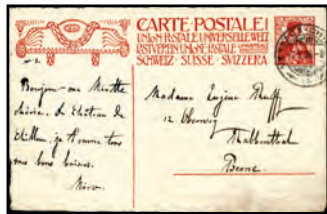 CARTE POSTALE!
UNION POSTALE UNIVERSELLE WELT
POSTVEREIN UNIONE POSTALE UNIVERSALE
SCHWEIZ · SUISSE · SVIZZERA
Bonjour ma Minette
chérie, du Château de
Chillon, je t'envoie tous
mes bons baisers.
Madame Eugène
12 Oberweg
Rabbenthal
Berne